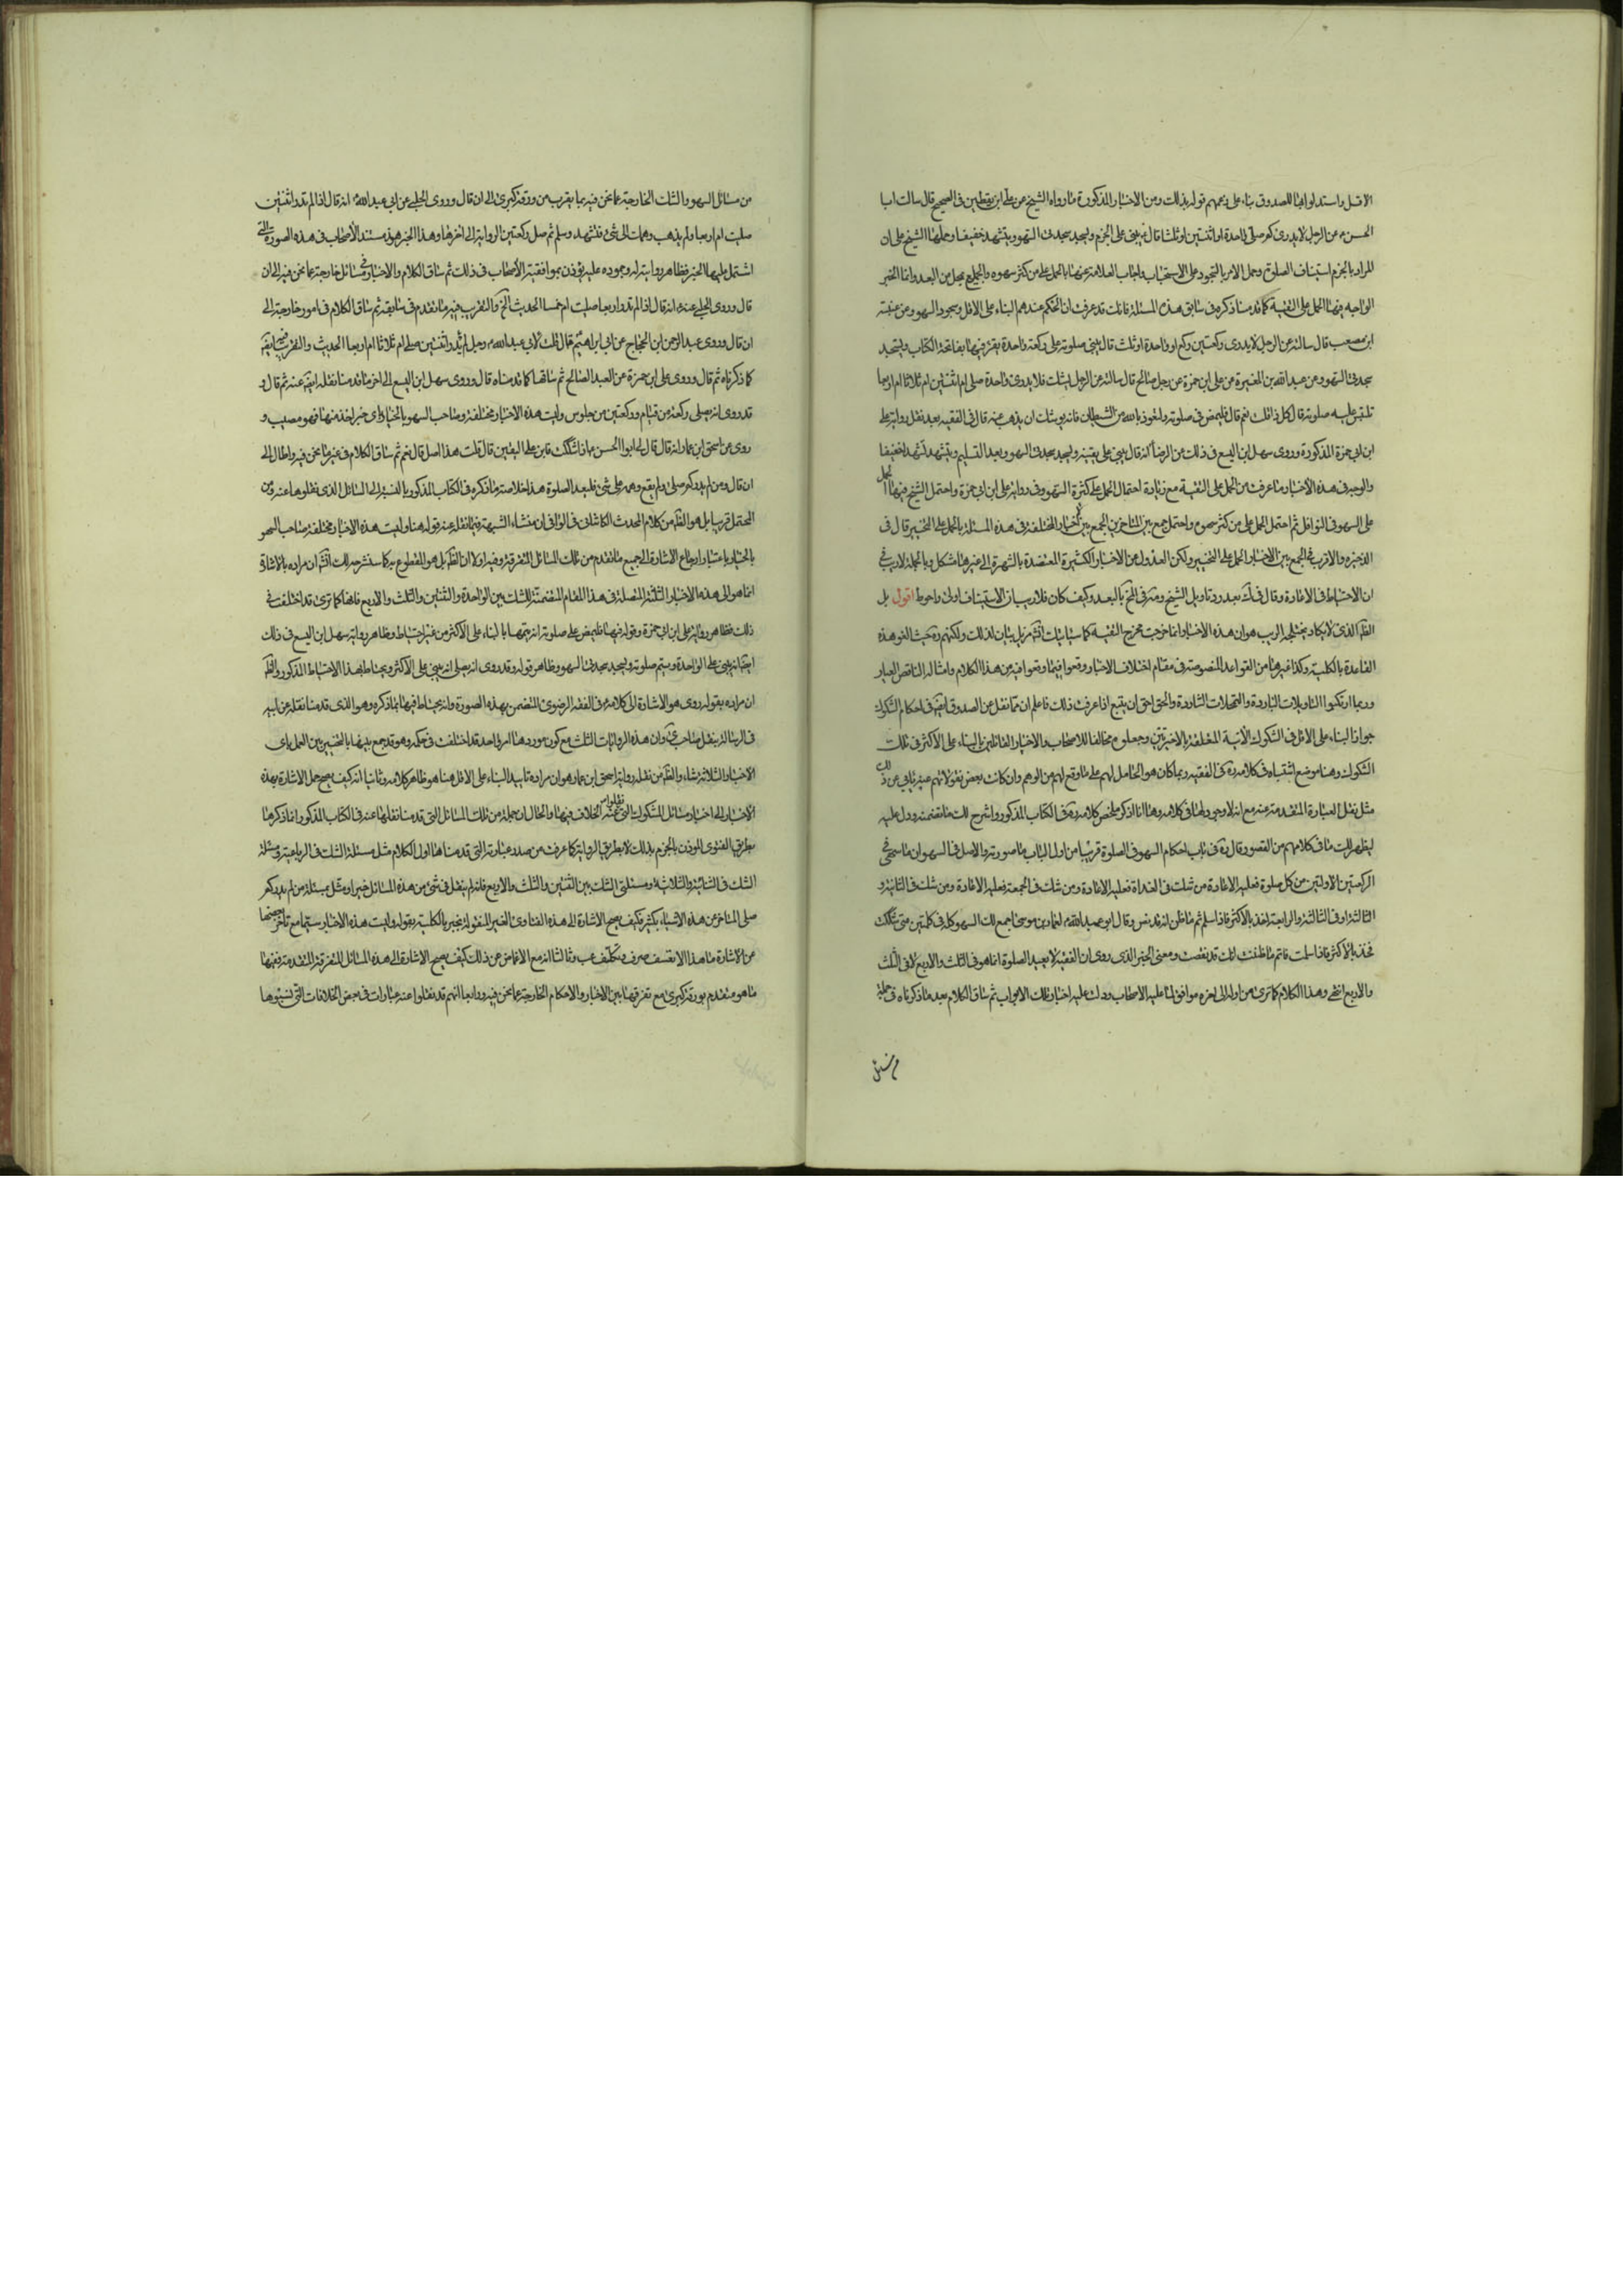 الاقل واستدلوا ايضا للصدوق بناء على زعمهم قوله بذلك ومن الاخبار المذكورة ما رواه الشيخ عن علي ابن يقطين في الصحيح قال سالت ابا
الحسن ع عن الرجل لا يدري كم صلى واحدة او اثنتين او ثلثا قال يبني على الجزم ويسجد سجدتي السهو ويتشهد خفيفا وحملها الشيخ على ان
المراد بالجزم استيناف الصلوة وحمل الامر بالسجود على الاستحباب واجاب العلامة عنها بالحمل على من كثر سهوه والجميع بمحل من البعد وانما الخبر
الواجه فيها الحمل على التقية كما قدمنا ذكره في سابق هذه المسئلة فانك قد عرفت ان الحكم عندهم البناء على الاقل وسجود السهو وعن عنبسة
ابن مصعب قال سالته عن الرجل لا يدري ركعتين ركع او واحدة او ثلث قال يبني صلوته على ركعة واحدة يقرء فيها بفاتحة الكتاب ويسجد
سجدتي السهو وعن عبد الله بن المغيرة عن علي ابن حمزة عن رجل صالح قال سالته عن الرجل يشك فلا يدري واحدة صلى ام اثنتين ام ثلاثا ام اربعا
تلتبس عليه صلوته قال كل ذا قلت نعم قال فليمض في صلوته وليتعوذ بالله من الشيطان فانه يوشك ان يذهب عنه قال في الفقيه بعد نقل رواية علي
ابن ابي حمزة المذكورة وروى سهل ابن اليسع في ذلك عن الرضا ع انه قال يبني على يقينه ويسجد سجدتي السهو بعد التسليم ويتشهد تشهدا خفيفا
والوجه في هذه الاخبار ما عرفت من الحمل على التقية مع زيادة احتمال الحمل على كثرة السهو في رواية علي ابن ابي حمزة واحتمل الشيخ فيها الحمل
على السهو في النوافل ثم احتمل الحمل على من كثر سهوه واحتمل جمع بين المتاخرين الجمع بين الاخبار المختلفة في هذه المسئلة بالحمل على التخيير قال في
الذخيرة والاقرب في الجمع بين الاخبار الحمل على التخيير ولكن العدول عن الاخبار الكثيرة المعتضدة بالشهرة الى غيرها مشكل وبالجملة لا ريب في
ان الاحتياط في الاعادة وقال في بعد رد تاويل الشيخ بالبعد وكيف كان فلا ريب ان الاستيناف اولى واحوط اقول بل
الظ الذي لا يكاد يختلجه الريب هو ان هذه الاخبار انما خرجت مخرج التقية كما سياتيك انش مزيد بيان لذلك ولكنهم ره حيث الغو هذه
القاعدة بالكلية وكذا غيرها من القواعد المنصوصة في مقام اختلاف الاخبار وقعوا فيما وقعوا فيه من هذا الكلام وامثاله الناقص العيار
وربما ارتكبوا التاويلات الباردة والتمحلات الشاردة والحق احق ان يتبع اذا عرفت ذلك فاعلم ان مما نقل عن الصدوق ايض في احكام الشكوك
جواز البناء على الاقل في الشكوك الاتية المتعلقة بالاخيرتين وجعلوه مخالفا للاصحاب والاخبار القائلين بالبناء على الاكثر في تلك
الشكوك وهنا موضع اشتباه في كلامه ره في الفقيه ربما كان هو الحامل لهم على ما وقع لهم من الوهم وان كانت بعض نقولاتهم عنه يابى عن ذلك
مثل نقل العبارة المتقدمة عنه مع انه لا وجود لها في كلامه وها انا اذكر ملخص كلامه ره في الكتاب المذكور واشرح لك ما تضمنه ودل عليه
ليظهر لك ما في كلامهم من القصور قال ره في باب احكام السهو في الصلوة قريبا من اول الباب ما صورته والاصل في السهو ان من سهى في
الركعتين الاولتين من كل صلوة فعليه الاعادة ومن شك في الغداة فعليه الاعادة ومن شك في الجمعة فعليه الاعادة ومن شك في الثانية و
الثالثة او في الثالثة والرابعة اخذ بالاكثر فاذا سلم اتم ما ظن انه قد نقص وقال ابو عبد الله ع لعمار بن موسى يا عمار اجمع لك السهو كله في كلمتين متى شككت
فخذ بالاكثر فاذا سلمت فاتم ما ظننت انك قد نقصت ومعنى الخبر الذي روى ان الفقيه لا يعيد الصلوة انما هو في الثلث والاربع لا في الثلث
والاربع انتهى وهذا الكلام كما ترى من اوله الى اخره موافق لما عليه الاصحاب ودلت عليه اخبار تلك الابواب ثم ساق الكلام بعد ما ذكرناه في جملة
من مسائل السهو والشك الخارجة عما نحن فيه بما يقرب من ورقة كبرى الى ان قال وروى الحلبي عن ابي عبد الله ع انه قال اذا لم تدر اثنتين
صليت ام اربعا ولم يذهب وهمك الى شئ فتشهد وسلم ثم صل ركعتين الرواية الى اخرها وهذا الخبر هو مستند الاصحاب في هذه الصورة التي
اشتمل عليها الخبر فظاهر روايته له وجموده عليه يؤذن بموافقته الاصحاب في ذلك ثم ساق الكلام والاخبار في مسائل خارجة عما نحن فيه الى ان
قال وروى الحلبي عنه ع انه قال اذا لم تدر اربعا صليت ام خمسا الحديث الخ والتقريب فيه ما تقدم في سابقه ثم ساق الكلام في امور خارجة الى
ان قال وروى عبد الرحمن ابن الحجاج عن ابي ابراهيم قال قلت لابي عبد الله ع رجل لم يدر اثنتين صلى ام ثلاثا ام اربعا الحديث والتقريب فيه كسابقه
كما ذكرناه ثم قال وروى علي ابن حمزة عن العبد الصالح ثم ساقها كما قدمناه قال وروى سهل ابن اليسع الى اخر ما قدمنا نقله ايض عنه ثم قال و
قد روي انه يصلي ركعة من قيام وركعتين من جلوس وليست هذه الاخبار مختلفة وصاحب السهو بالخيار باي خبر اخذ منها فهو مصيب و
روى عن اسحق ابن عمار انه قال قال لي ابو الحسن ع اذا شككت فابن على اليقين قال قلت هذا اصل قال نعم ثم ساق الكلام في غير ما نحن فيه واطال الى
ان قال ومن لم يدر كم صلى ولم يقع وهمه على شئ فليعد الصلوة هذا خلاصة ما ذكره في الكتاب المذكور بالنسبة الى المسائل الذي نقلوها عنه ومن
المحتمل قريبا بل هو الظ من كلام المحدث الكاشاني في الوافي ان منشاء الشبهة فيما نقل عنه قوله هنا وليست هذه الاخبار مختلفة وصاحب السهو
بالخيار باعتبار ارجاع الاشارة الى جميع ما تقدم من تلك المسائل المتفرقة وفيه اولا ان الظ بل هو المقطوع به كما سنشرحه لك انش ان مراده بالاشارة
انما هو الى هذه الاخبار الثلثة المتصلة في هذا المقام المتضمنة للشك بين الواحدة والثنتين والثلث والاربع فانها كما ترى قد اختلفت في
ذلك فظاهر رواية علي ابن ابي حمزة وقوله فيها فليمض على صلوته انه يتمها بالبناء على الاكثر من غير احتياط وظاهر رواية سهل ابن اليسع في ذلك
ايض انه يبني على الواحدة ويتم صلوته ويسجد سجدتي السهو وظاهر قوله وقد روي انه يصلي انه يبني على الاكثر ويحتاط بهذا الاحتياط المذكور والظ
ان مراده بقوله روي هو الاشارة الى كلامه ع في الفقه الرضوي المتضمن بهذه الصورة وانه يحتاط فيها بما ذكره وهو الذي قدمنا نقله عن ابيه
في الرسالة بنقل صاحب وان هذه الروايات الثلث مع كون موردها امر واحد قد اختلفت في حكمه وهو قد جمع بينها بالتخيير بين العمل باي
الاخبار الثلاثة شاء والظ من نقله رواية اسحق ابن عمار هو ان مراده تاييد البناء على الاقل هنا هو ظاهر كلامه وثانيا انه كيف يصح حمل الاشارة بهذه
الاخبار الى اخبار مسائل الشكوك التي نقلوا عنه الخلاف فيها والحال ان جملة من تلك المسائل التي قدمنا نقلها عنه في الكتاب المذكور انما ذكرها
بطريق الفتوى الموذن بالجزم بذلك لا بطريق الرواية كما عرفت من صدر عبارته التي قدمناها اول الكلام مثل مسئلة الشك في الرباعية ومسئلة
الشك في الثنائية والثلاثية ومسئلتي الشك بين الثنتين والثلث والاربع فانه لم ينقل في شئ من هذه المسائل خبرا ومثل مسئلة من لم يدر كم
صلى المتاخر عن هذه الاشياء بكثير فكيف يصح الاشارة الى هذه الفتاوى الغير المنقولة بخبر بالكلية بقوله وليست هذه الاخبار سيما مع تاخر بعضها
عن الاشارة ما هذا الا تعسف صرف وتكلف بحت وثالثا انه مع الاغماض عن ذلك كيف يصح الاشارة الى هذه المسائل المتفرقة المتقدمة وفيها
ما هو متقدم بورقة كبرى مع تفرقها بين الاخبار والاحكام الخارجة عما نحن فيه ورابعا انهم قد نقلوا عنه عبارات في بعض الخلافات التي نسبوها